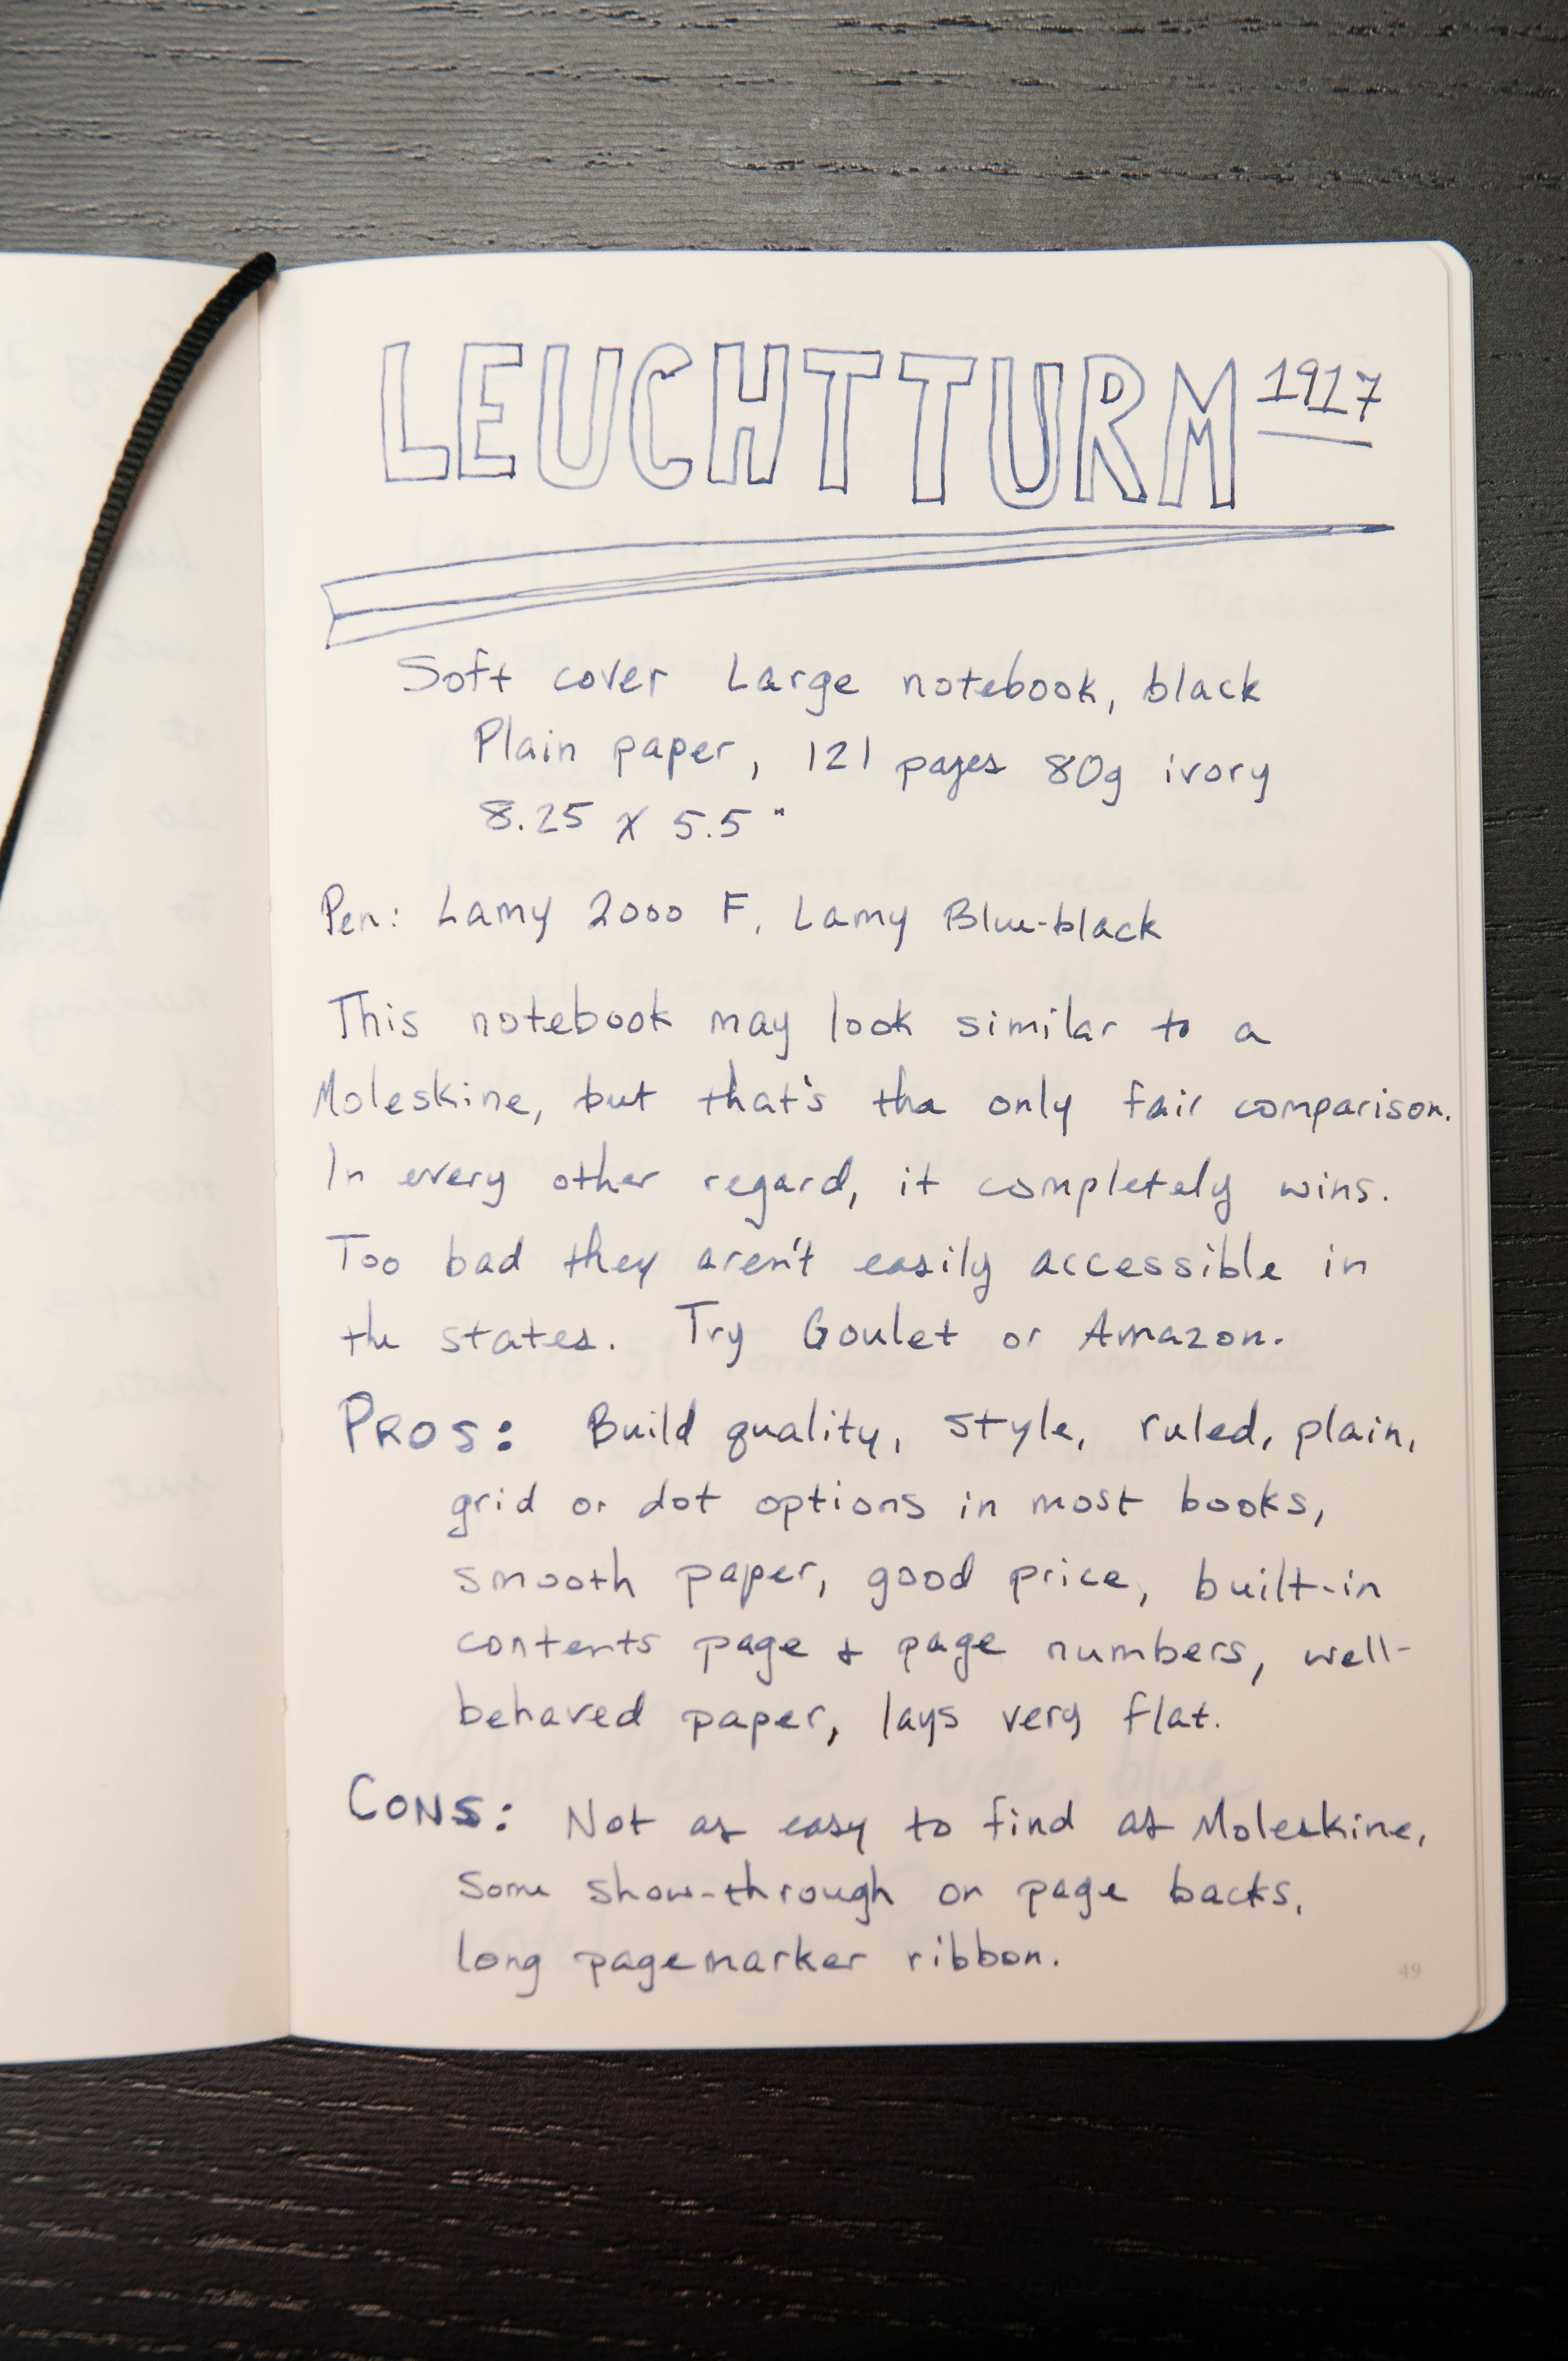 LEUCHTTURM 1917
Soft cover Large notebook, black
Plain paper, 121 pages 80g ivory
8.25 x 5.5"
Pen: Lamy 2000 F, Lamy Blue-black
This notebook may look similar to a
Moleskine, but that's the only fair comparison.
In every other regard, it completely wins.
Too bad they aren't easily accessible in
the states. Try Goulet or Amazon.
PROS: Build quality, style, ruled, plain,
grid or dot options in most books,
smooth paper, good price, built-in
contents page + page numbers, well-
behaved paper, lays very flat.
CONS: Not as easy to find as Moleskine,
some show-through on page backs,
long pagemarker ribbon.
49